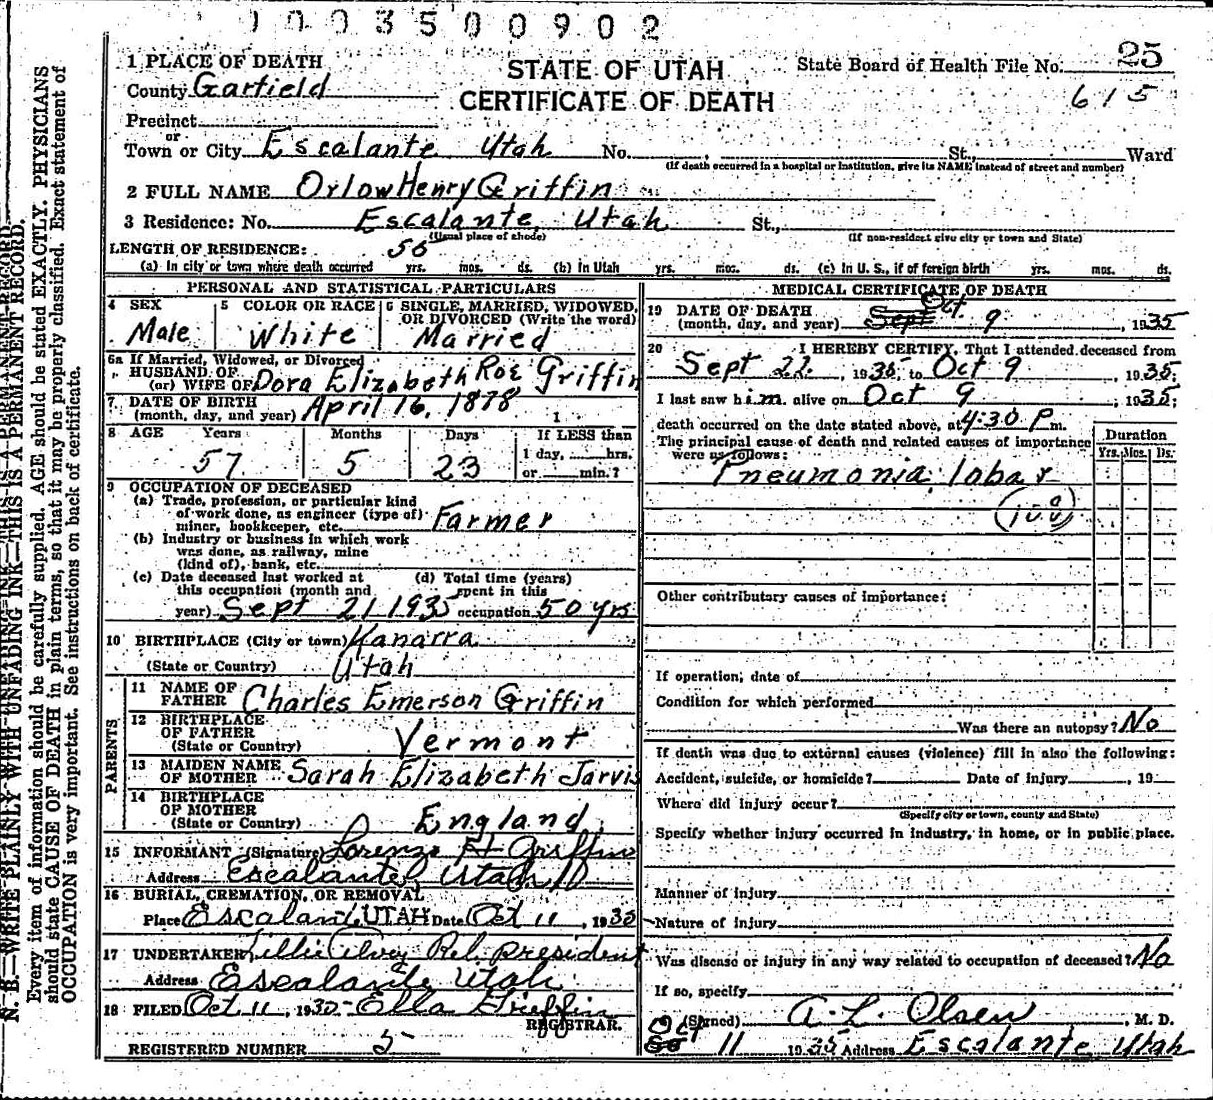 1003500902
25
1 PLACE OF DEATH
STATE OF UTAH
State Board of Health File No.
County Garfield
CERTIFICATE OF DEATH
615
Precinct
or
Town or City Escalante Utah No. , St., Ward
(If death occurred in a hospital or institution, give its NAME instead of street and number)
2 FULL NAME Orlow Henry Griffin
3 Residence: No. Escalante, Utah St.,
(Usual place of abode) (If non-resident give city or town and State)
LENGTH OF RESIDENCE: 50
(a) In city or town where death occurred yrs. mos. ds. (b) In Utah yrs. mos. ds. (c) In U. S., if of foreign birth yrs. mos. ds.
PERSONAL AND STATISTICAL PARTICULARS
4 SEX 5 COLOR OR RACE 6 SINGLE, MARRIED, WIDOWED,
OR DIVORCED (Write the word)
Male White Married
6a If Married, Widowed, or Divorced
HUSBAND OF
(or) WIFE OF Dora Elizabeth Roe Griffin
7 DATE OF BIRTH
(month, day, and year) April 16, 1878 1
8 AGE Years Months Days If LESS than
1 day, hrs.
57 5 23 or min.?
9 OCCUPATION OF DECEASED
(a) Trade, profession, or particular kind
of work done, as engineer (type of)
miner, bookkeeper, etc. Farmer
(b) Industry or business in which work
was done, as railway, mine
(kind of), bank, etc.
(c) Date deceased last worked at (d) Total time (years)
this occupation (month and spent in this
year) Sept 21 1935 occupation 50 yrs
10 BIRTHPLACE (City or town) Kanarra
(State or Country) Utah
PARENTS
11 NAME OF
FATHER Charles Emerson Griffin
12 BIRTHPLACE
OF FATHER
(State or Country) Vermont
13 MAIDEN NAME
OF MOTHER Sarah Elizabeth Jarvis
14 BIRTHPLACE
OF MOTHER
(State or Country) England
15 INFORMANT (Signature) Lorenzo H Griffin
Address Escalante Utah
16 BURIAL, CREMATION, OR REMOVAL
Place Escalante UTAH Date Oct 11, 1935
17 UNDERTAKER Lillie Rel. President
Address Escalante Utah
18 FILED Oct 11, 1935 Ella Griffin
REGISTRAR.
REGISTERED NUMBER 5
MEDICAL CERTIFICATE OF DEATH
19 DATE OF DEATH
(month, day, and year) Sept Oct. 9, 1935
20 I HEREBY CERTIFY, That I attended deceased from
Sept 22, 1935, to Oct 9, 1935.
I last saw him alive on Oct 9, 1935;
death occurred on the date stated above, at 4:30 P m.
The principal cause of death and related causes of importance
were as follows:
Duration
Yrs. Mos. Ds.
Pneumonia lobar
Other contributary causes of importance:
If operation, date of
Condition for which performed
Was there an autopsy? No
If death was due to external causes (violence) fill in also the following:
Accident, suicide, or homicide? Date of injury , 19
Where did injury occur?
(Specify city or town, county and State)
Specify whether injury occurred in industry, in home, or in public place.
Manner of injury
Nature of injury
Was disease or injury in any way related to occupation of deceased? No
If so, specify
(Signed) A. L. Olsen, M. D.
Oct 11 1935 Address Escalante Utah
N. B.—WRITE PLAINLY WITH UNFADING INK—THIS IS A PERMANENT RECORD.
Every item of information should be carefully supplied. AGE should be stated EXACTLY. PHYSICIANS
should state CAUSE OF DEATH in plain terms, so that it may be properly classified. Exact statement of
OCCUPATION is very important. See instructions on back of certificate.